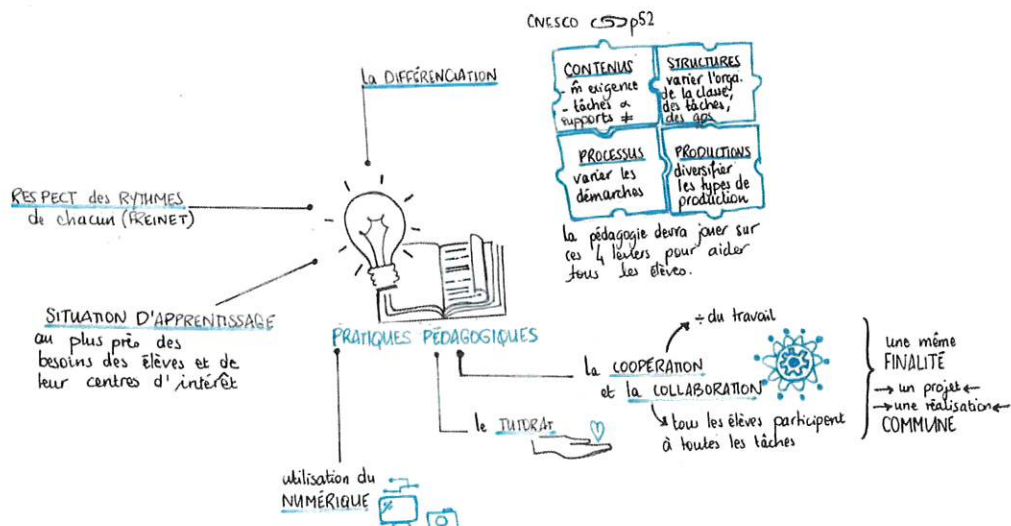 CNESCO p52
la DIFFÉRENCIATION
CONTENUS
- m̂ exigence
- tâches ∝
supports ≠
STRUCTURES
varier l'orga.
de la classe,
des tâches,
des gps
PROCESSUS
varier les
démarches
PRODUCTIONS
diversifier
les types de
production
la pédagogie devra jouer sur
ces 4 leviers pour aider
tous les élèves.
RESPECT des RYTHMES
de chacun (FREINET)
SITUATION D'APPRENTISSAGE
au plus près des
besoins des élèves et de
leur centres d'intérêt
PRATIQUES PÉDAGOGIQUES
÷ du travail
la COOPÉRATION
et la COLLABORATION
tous les élèves participent
à toutes les tâches
une même
FINALITÉ
→ un projet ←
→ une réalisation ←
COMMUNE
le TUTORAT
utilisation du
NUMÉRIQUE